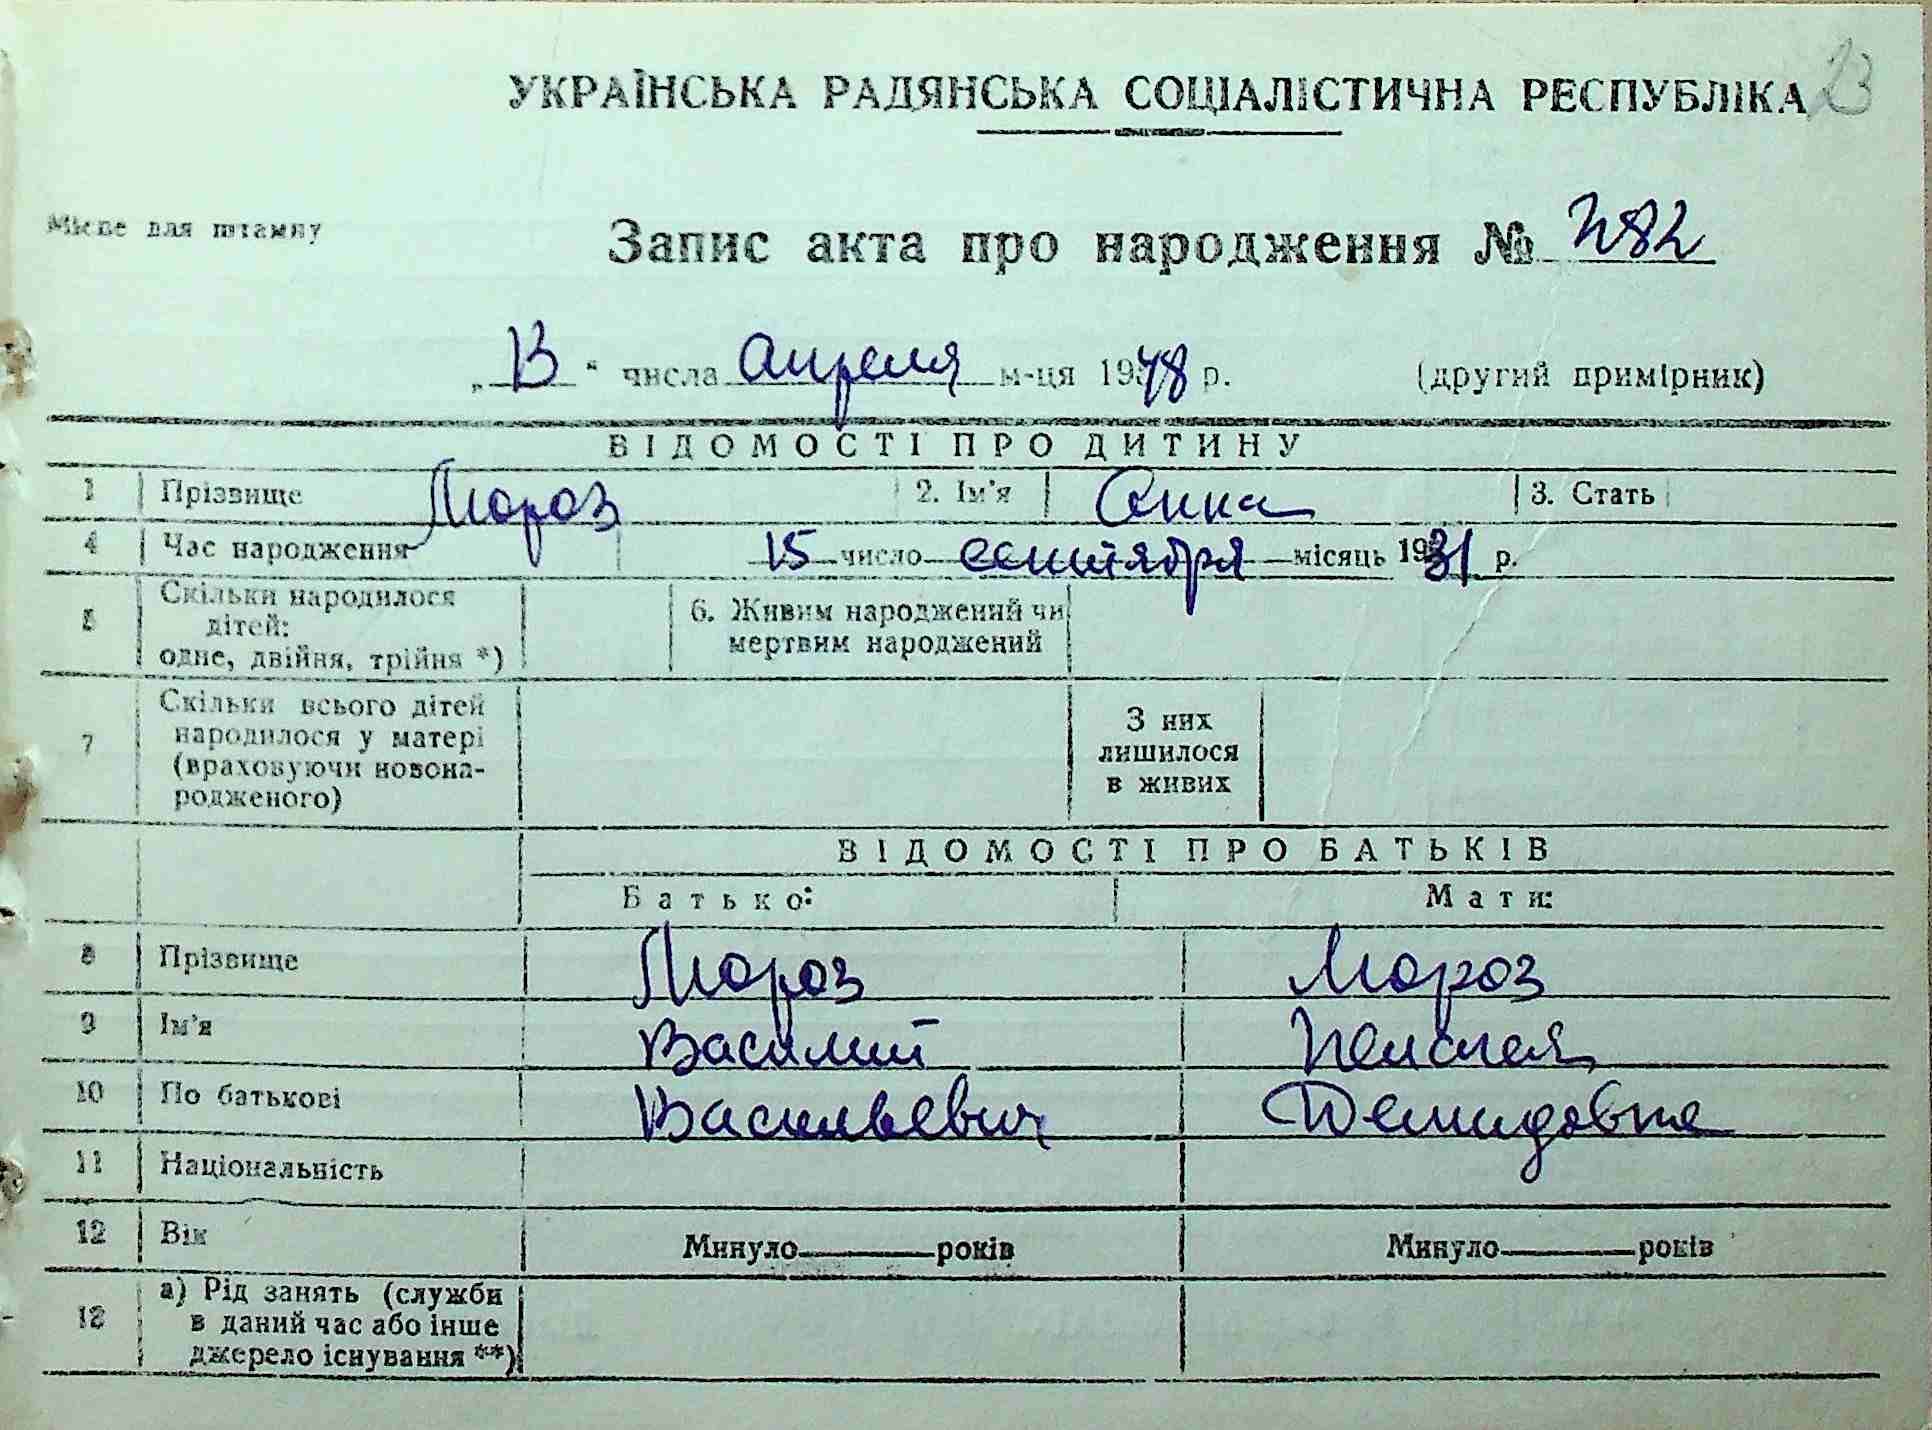 23
УКРАЇНСЬКА РАДЯНСЬКА СОЦІАЛІСТИЧНА РЕСПУБЛІКА
Місце для штампу
Запис акта про народження № 282
„13“ числа апреля м-ця 1948 р. (другий примірник)
ВІДОМОСТІ ПРО ДИТИНУ
1 Прізвище Мороз 2. Ім'я Анна 3. Стать
4 Час народження 15 число сентября місяць 1931 р.
5 Скільки народилося
дітей:
одне, двійня, трійня *)
6. Живим народжений чи
мертвим народжений
7 Скільки всього дітей
народилося у матері
(враховуючи новона-
родженого)
З них
лишилося
в живих
ВІДОМОСТІ ПРО БАТЬКІВ
Батько: Мати:
8 Прізвище Мороз Мороз
9 Ім'я Василий Пелагея
10 По батькові Васильевич Демидовна
11 Національність
12 Вік Минуло років Минуло років
13 а) Рід занять (служби
в даний час або інше
джерело існування **)